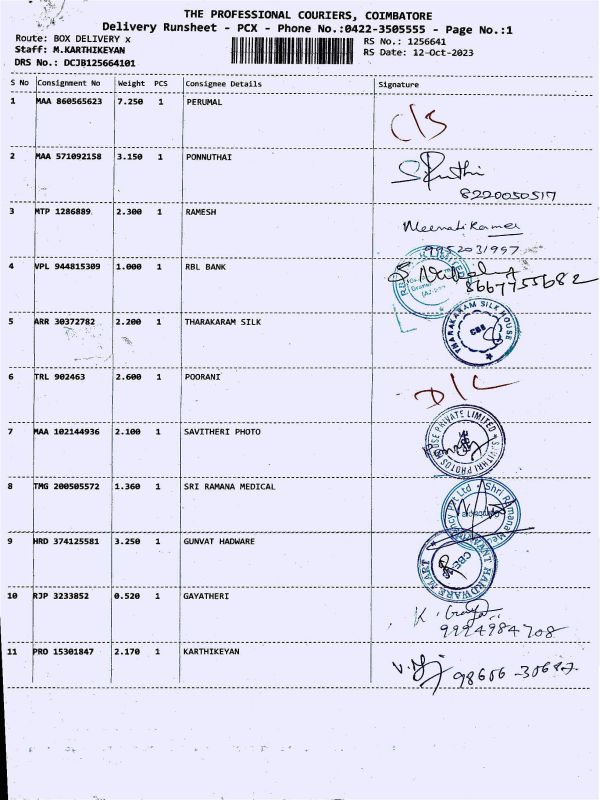 THE PROFESSIONAL COURIERS, COIMBATORE
Delivery Runsheet - PCX - Phone No.:0422-3505555 - Page No.:1
Route: BOX DELIVERY x
RS No.: 1256641
Staff: M.KARTHIKEYAN
RS Date: 12-Oct-2023
DRS No.: DCJB125664101
S No Consignment No Weight PCS Consignee Details Signature
1 MAA 860565623 7.250 1 PERUMAL
C/S
2 MAA 571092158 3.150 1 PONNUTHAI
8220050517
3 MTP 1286889 2.300 1 RAMESH
9952031997
4 VPL 944815309 1.000 1 RBL BANK
8667755682
5 ARR 30372782 2.200 1 THARAKARAM SILK
THARAKARAM SILK HOUSE
CBE
6 TRL 902463 2.600 1 POORANI
D/L
7 MAA 102144936 2.100 1 SAVITHERI PHOTO
SAVITHRI PHOTOS HOUSE PRIVATE LIMITED
8 TMG 200505572 1.360 1 SRI RAMANA MEDICAL
Shri Ramana
Pvt Ltd
9 HRD 374125581 3.250 1 GUNVAT HADWARE
HARDWARE MART
CBE
10 RJP 3233852 0.520 1 GAYATHERI
9994984708
11 PRO 15301847 2.170 1 KARTHIKEYAN